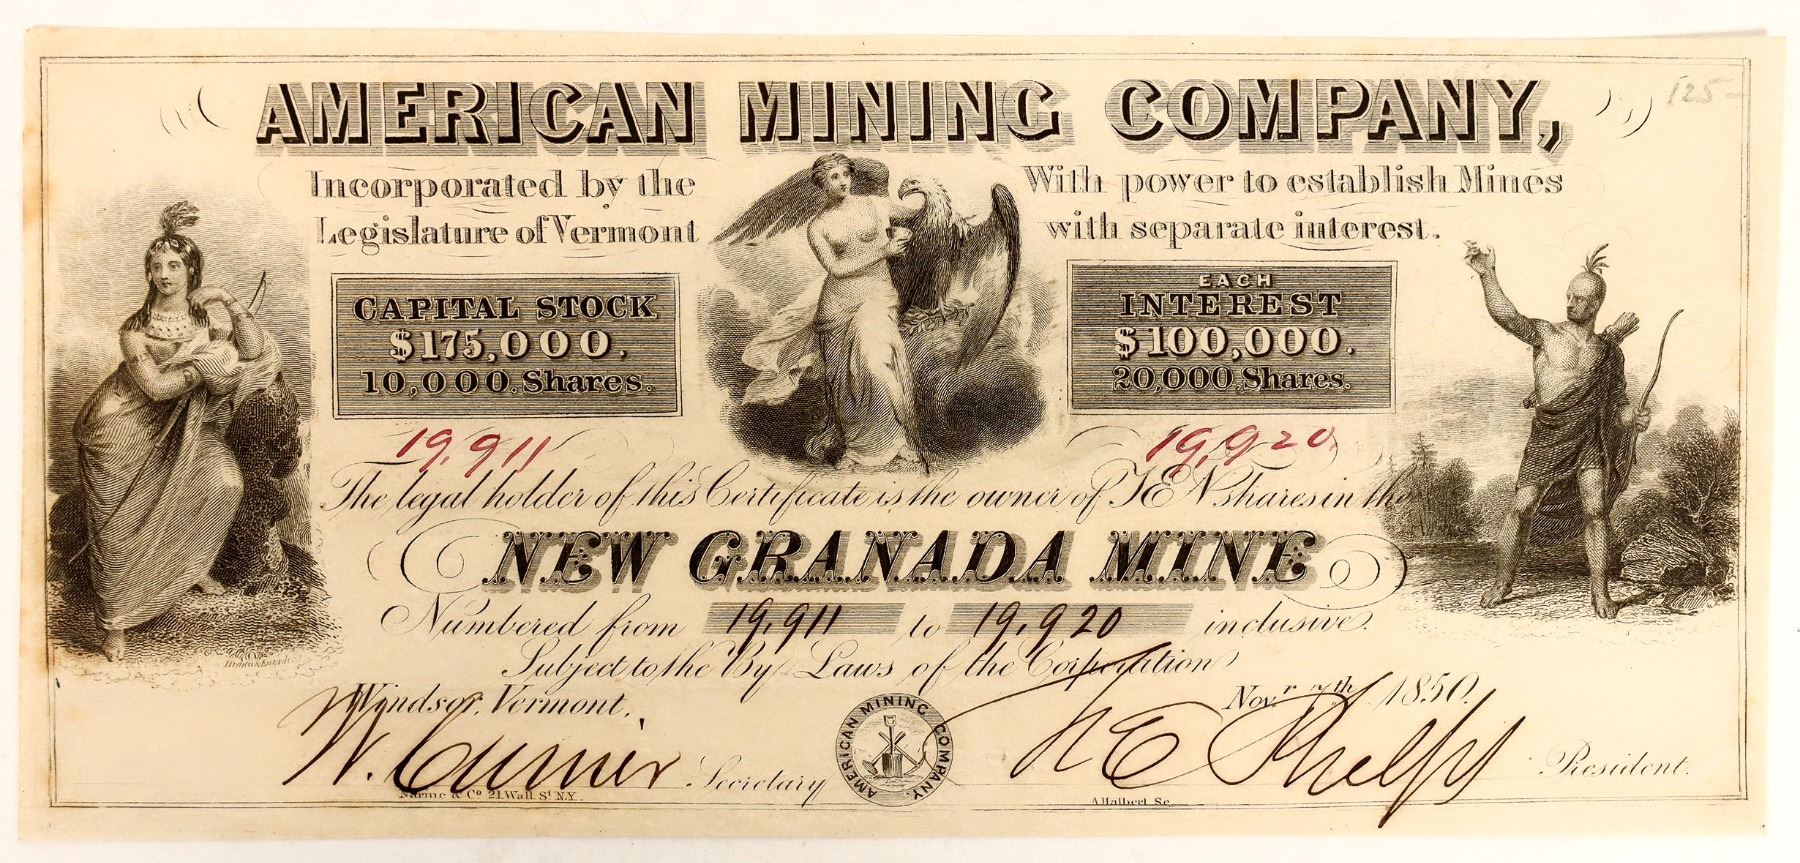 AMERICAN MINING COMPANY,
125-
Incorporated by the
Legislature of Vermont
With power to establish Mines
with separate interest.
CAPITAL STOCK
$175,000.
10,000.Shares.
EACH
INTEREST
$100,000.
20,000.Shares.
19,911
19,920
The legal holder of this Certificate is the owner of TEN shares in the
NEW GRANADA MINE
Numbered from 19,911 to 19,920 inclusive.
Subject to the By Laws of the Corporation
Windsor, Vermont,
Nov.r 7th 1850.
W. Currier Secretary
AMERICAN MINING COMPANY.
E Phelps President.
& Co 21 Wall St N.Y.
A Halbert Sc